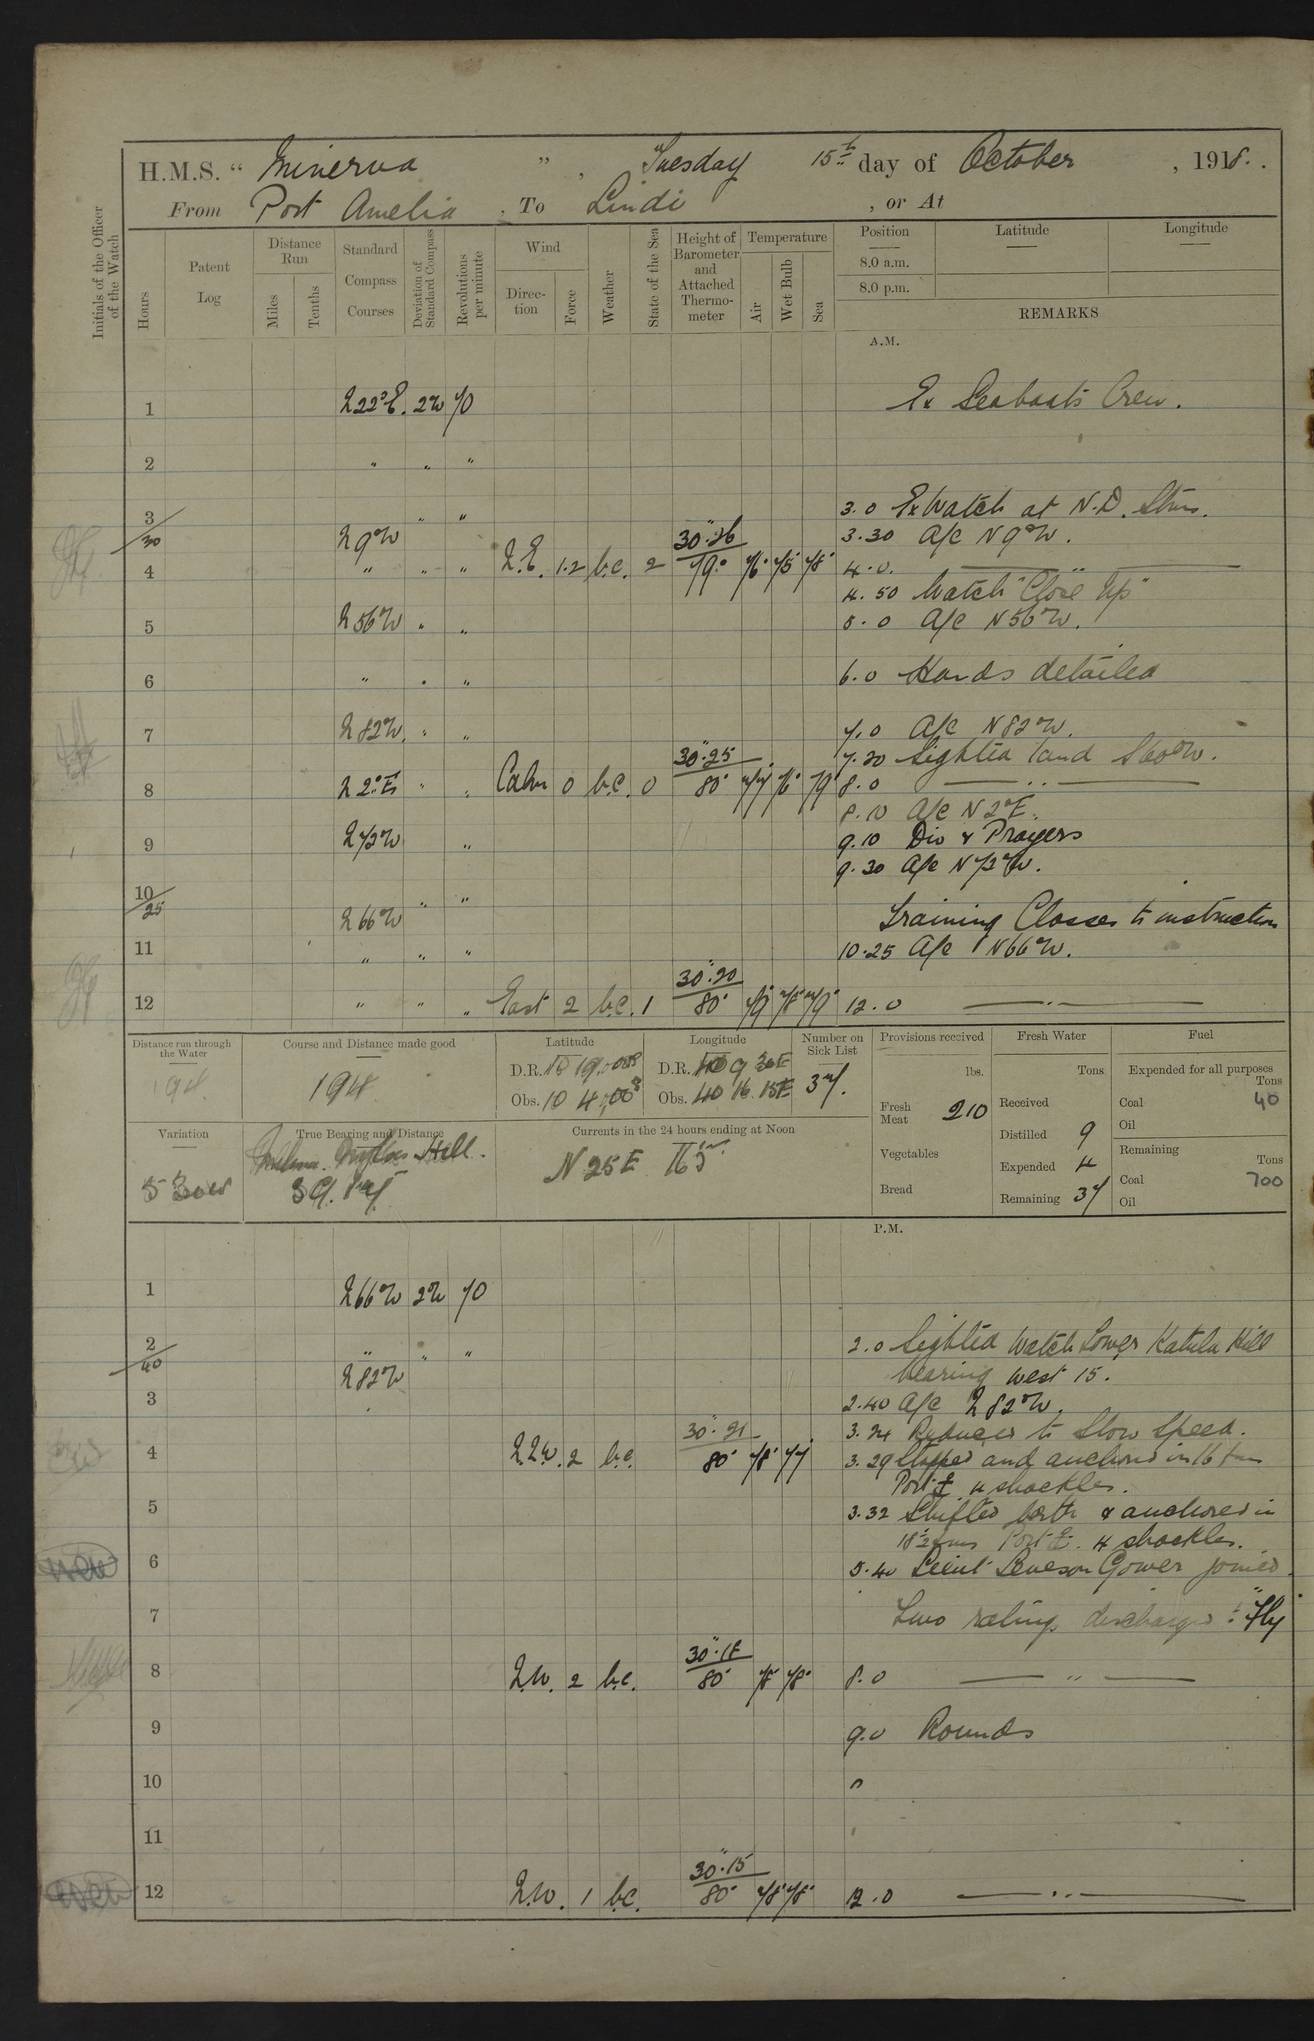 H.M.S. " Minerva ", Tuesday 15th day of October, 1918.
From Port Amelia, To Lindi, or At
Initials of the Officer of the Watch
Hours
Patent Log
Distance Run
Miles
Tenths
Standard Compass Courses
Deviation of Standard Compass
Revolutions per minute
Wind
Direction
Force
Weather
State of the Sea
Height of Barometer and Attached Thermometer
Temperature
Air
Wet Bulb
Sea
Position
Latitude
Longitude
8.0 a.m.
8.0 p.m.
REMARKS
A.M.
1 N22°E. 2W 70 Ex Seaboats Crew.
2 " " "
3 " " 3.0 Ex Watch at N.D. Stns.
30 N9°W 3.30 A/c N9°W.
4 " " " N.E. 1.2 b.c. 2 30".26 79° 76° 75° 78° 4.0. — " —
4.50 Watch "Close Up"
5 N56°W " " 5.0 A/c N56°W.
6 " " " 6.0 Hands detailed
7 N82W. " " 7.0 A/c N82°W.
7.20 Sighted land S60°W.
8 N2°E " " Calm 0 b.c. 0 30".25 80° 77° 76° 79 8.0 — " —
8.10 A/c N2°E.
9 N73°W " 9.10 Div & Prayers
9.30 A/c N73°W.
10 " "
25 N66°W Training Classes to instruction
11 " " " 10.25 A/c N66°W.
12 " " " East 2 b.c. 1 30".20 80° 79° 78° 79° 12.0 — " —
Distance run through the Water
194
Course and Distance made good
194
Latitude
D.R.
Obs. 10 4 00 S
Longitude
D.R.
Obs. 40 16 15E
Number on Sick List
37.
Provisions received
lbs.
Fresh Meat 210
Vegetables
Bread
Fresh Water
Tons
Received
Distilled 9
Expended 4
Remaining 37
Fuel
Expended for all purposes
Tons
Coal 40
Oil
Remaining
Tons
Coal 700
Oil
Variation
5 30W
True Bearing and Distance
Hill.
Currents in the 24 hours ending at Noon
N 25 E
P.M.
1 N66°W 2W 70
2 " " " 2.0 Sighted Watch Tower Katulu Hill
40 N82W bearing west 15.
3 2.40 A/c N82°W.
3.24 Reduced to Slow Speed.
4 N.N.W. 2 b.c. 30".21 80° 78° 77 3.29 Stopped and anchored in 16 fms
Port 4 shackles.
5 3.32 Shifted berth & anchored in
18½ fms Port 4 shackles.
6 5.40 Lieut Leveson Gower joined.
7 Two ratings discharged "Fly"
8 N.W. 2 b.c. 30".18 80° 78° 78° 8.0 — " —
9 9.0 Rounds
10
11
12 N.W. 1 b.c. 30".15 80° 78° 78° 12.0 — " —